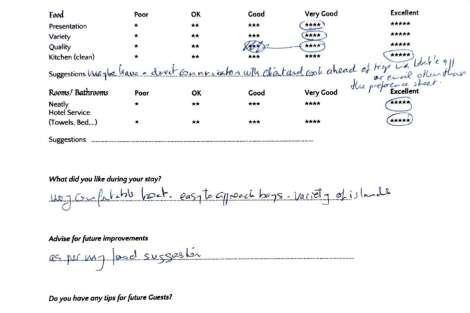 Food Poor OK Good Very Good Excellent
Presentation * ** *** **** *****
Variety * ** *** **** *****
Quality * ** *** **** *****
Kitchen (clean) * ** *** **** *****
Suggestions maybe have a direct communication with client and cook ahead of trips via
or email other than
the preference sheet.
Rooms/ Bathrooms Poor OK Good Very Good Excellent
Neatly * ** *** **** *****
Hotel Service
(Towels, Bed...) * ** *** **** *****
Suggestions
What did you like during your stay?
very comfortable boat. easy to approach bays. variety of islands
Advise for future improvements
as per my food suggestion
Do you have any tips for future Guests?